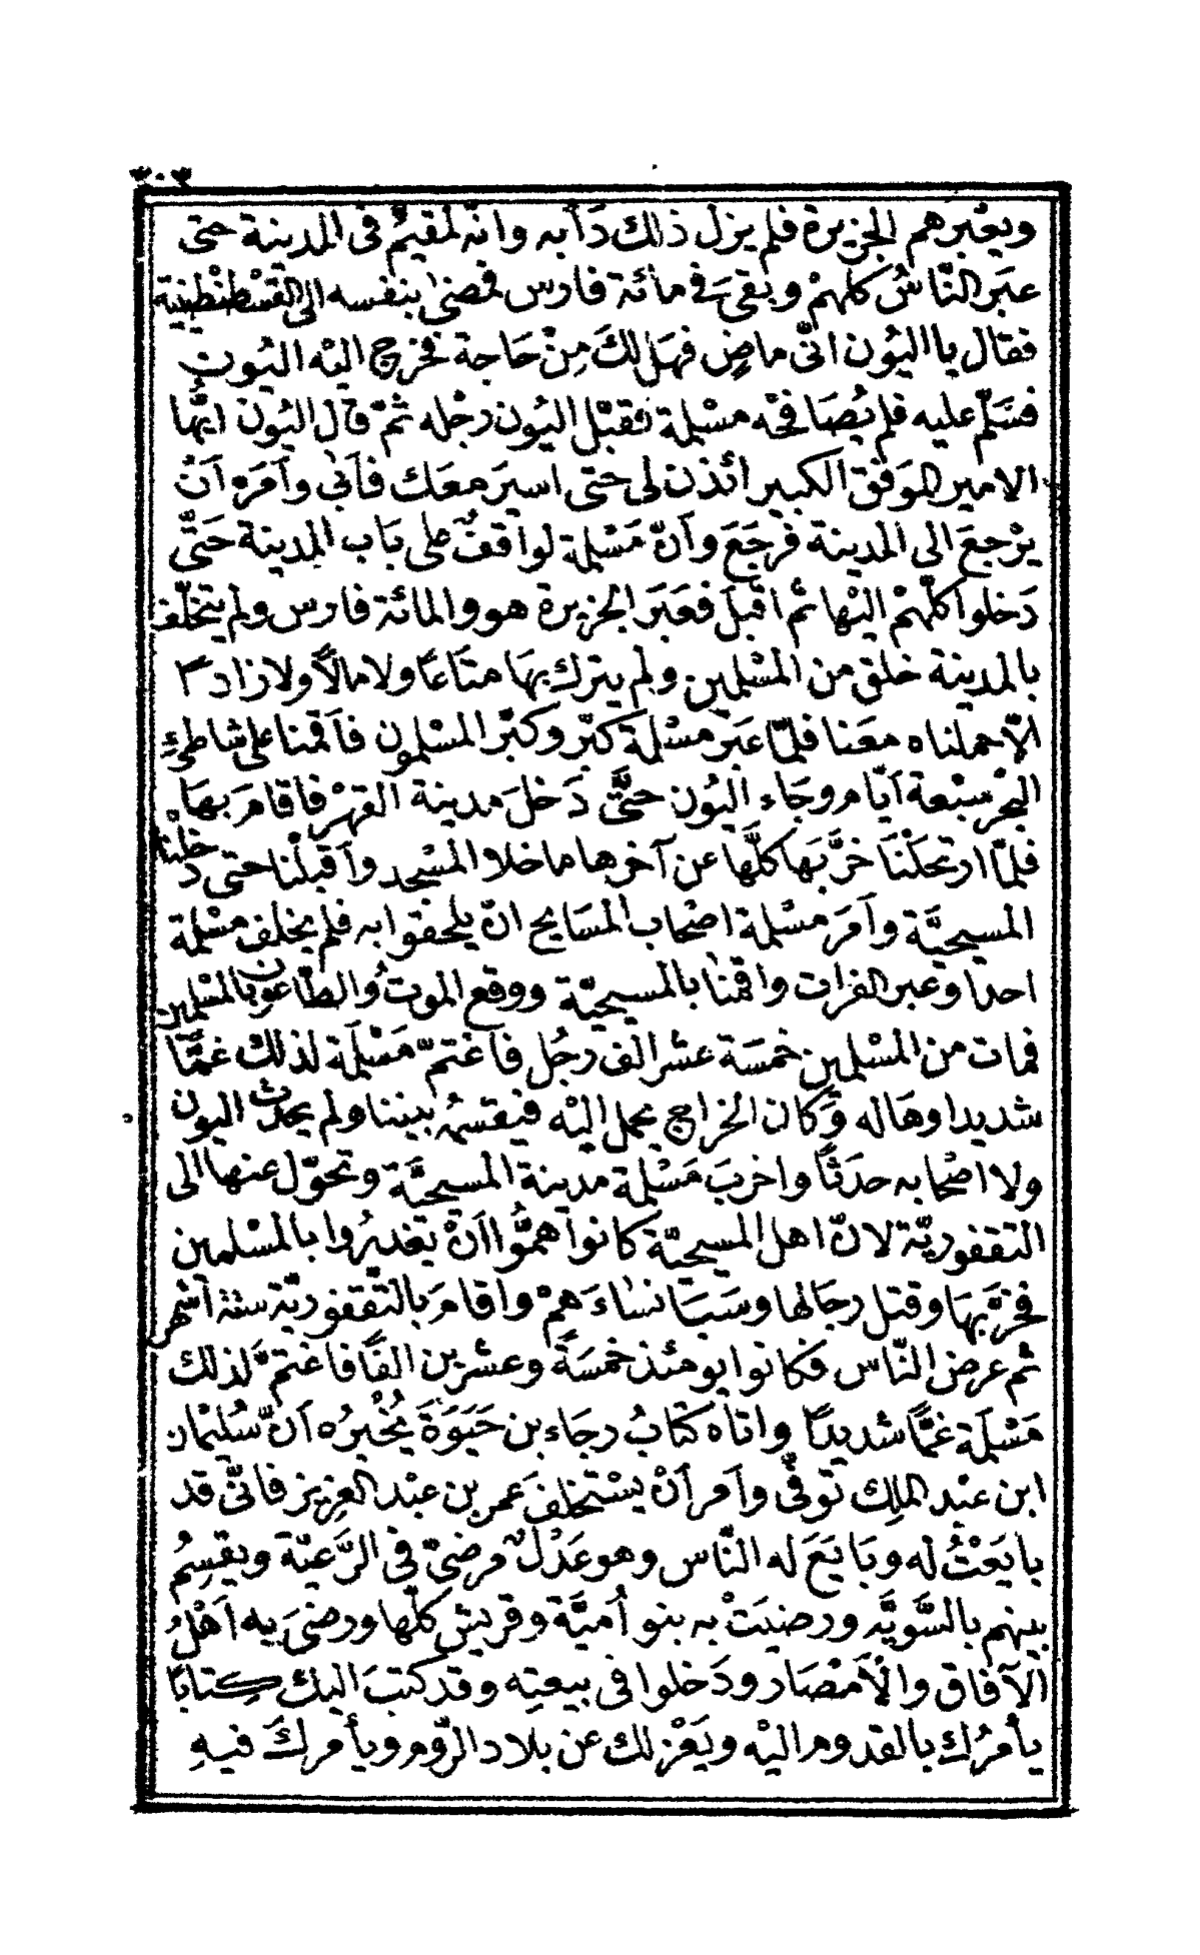 ٢٠٢
ويعْبرهم الجزيرة فلم يزل ذلك دَأبه وانّه لمقيمٌ في المدينة حتى
عبَر النّاسُ كلهمْ وبقىَ في مائة فارس فمضىٰ بنفسه الى القسْطنْطينية
فقال يا اليُون انّى ماضٍ فهَل لكَ مِنْ حَاجة فخرج اليْه اليُون
فسَلّم عليه فلم يُصَافحْه مسْلمة فقبّل اليُون رجْله ثمّ قال اليُون ايُّها
الامير الموَفق الكبير ائذن لى حتى اسيرَ معَك فأبى وأمَره أنْ
يرْجعَ الى المدينة فرجَعَ وأنّ مَسْلمة لواقفٌ على بَاب المدينة حَتَّى
دَخلوا كلّهمْ اليْها ثم اقبلَ فعَبَر الجزيرة هو والمائة فارس ولم يتخلّف
بالمدينة خلق من المسْلمين ولم يترك بهَا متَاعًا ولا مالاً ولا زادا
الّا حملناه معَنا فلمّا عبَر مسْلمة كبّر وكبّر المسْلمون فأقمنا على شاطئِ
البحْر سبْعة أيّام وجَاء اليُون حتَّى دَخلَ مدينة القهْر فاقامَ بهَا
فلمّا ارتحَلْنَا خرَّبَها كلَّها عن آخرها ما خلا المسْجد وأقبلْنا حتى دخلْنا
المسيحيَّة وأمَر مسْلمة اصْحاب المسَايح انّ يلحقوا به فلم يخلف مسْلمة
احدا وعبر الفرات واقمْنا بالمسيحيّة ووقع الموتُ والطّاعون بالمسْلمين
فمات من المسْلمين خمسَة عشر الف رجُل فأغتمّ مَسْلمَة لذلكْ غمًّا
شديدا وهَاله وَكان الخراج يحمل اليْه فيقسمُه بيننا ولم يحدث اليون
ولا اصْحابه حدَثًا واخربَ مَسْلمة مدينة المسيحيَّة وتحوّل عنها الى
التقفوريّة لانّ اهل المسيحيّة كانوا همُّوا أنْ يغدرُوا بالمسْلمين
فخرَّبهَا وقتل رجَالها وسَبَا نسَاءَهمْ واقامَ بالتّقفوريّة ستة أشهر
ثم عرض النّاس فكانوا يومئذ خمسَةً وعشرين الفًا فاغتمَّ لذلك
مَسْلمَة غمًّا شديدًا واتاه كتابُ رجَاء بن حَيَوَةَ يُخْبرُه أنّ سُليْمان
ابن عبْد الملِك توفّى وأمر أنْ يسْتخلفَ عمر بن عبْد العزيز فانّى قد
بايَعْتُ له وبَايَعَ له النّاس وهو عَدْلٌ مرضىّ في الرَّعيّة ويقسِمُ
بينهم بالسَّويَّه ورضيَتْ به بنو أميَّة وقريش كلّها ورضىَ به اهْلُ
الآفاق والأمْصَار ودَخلوا في بيعتِه وقد كتبَ اليك كِتابًا
يأمرُك بالقدوم اليْه ويَعْزلك عن بلاد الرّوم ويأمركَ فيهِ